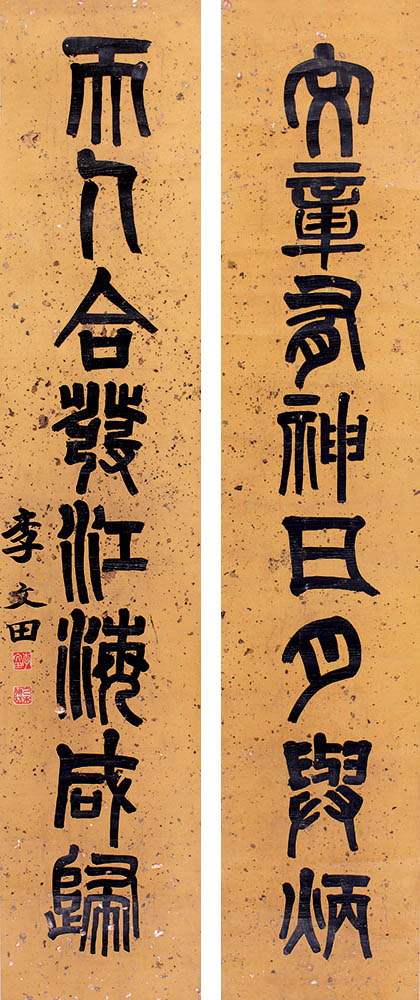 文章有神日月與炳
天人合發江海咸歸
李文田